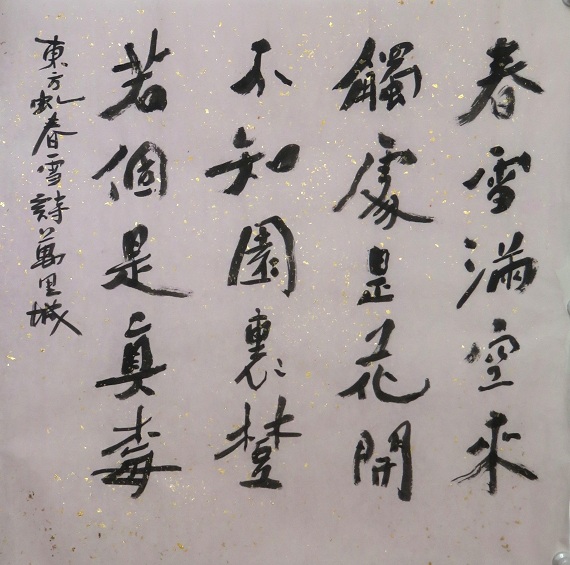 春雪滿空來
觸處是花開
不知園裏樹
若個是真梅
東方虬春雪詩萬里城